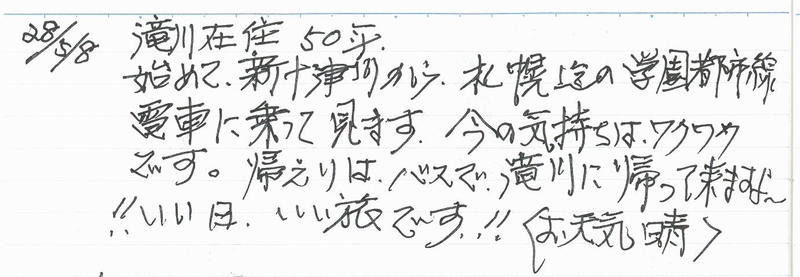 28/5/8 滝川在住 50年.
始めて、新十津川から、札幌迄の学園都市線
電車に乗って見ます。今の気持ちは、ワクワク
です。帰えりは、バスで、滝川に帰って来ますね〜
!!いい日、いい旅です、!!〈お天気晴〉